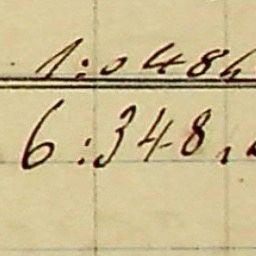 1:048
6:348,